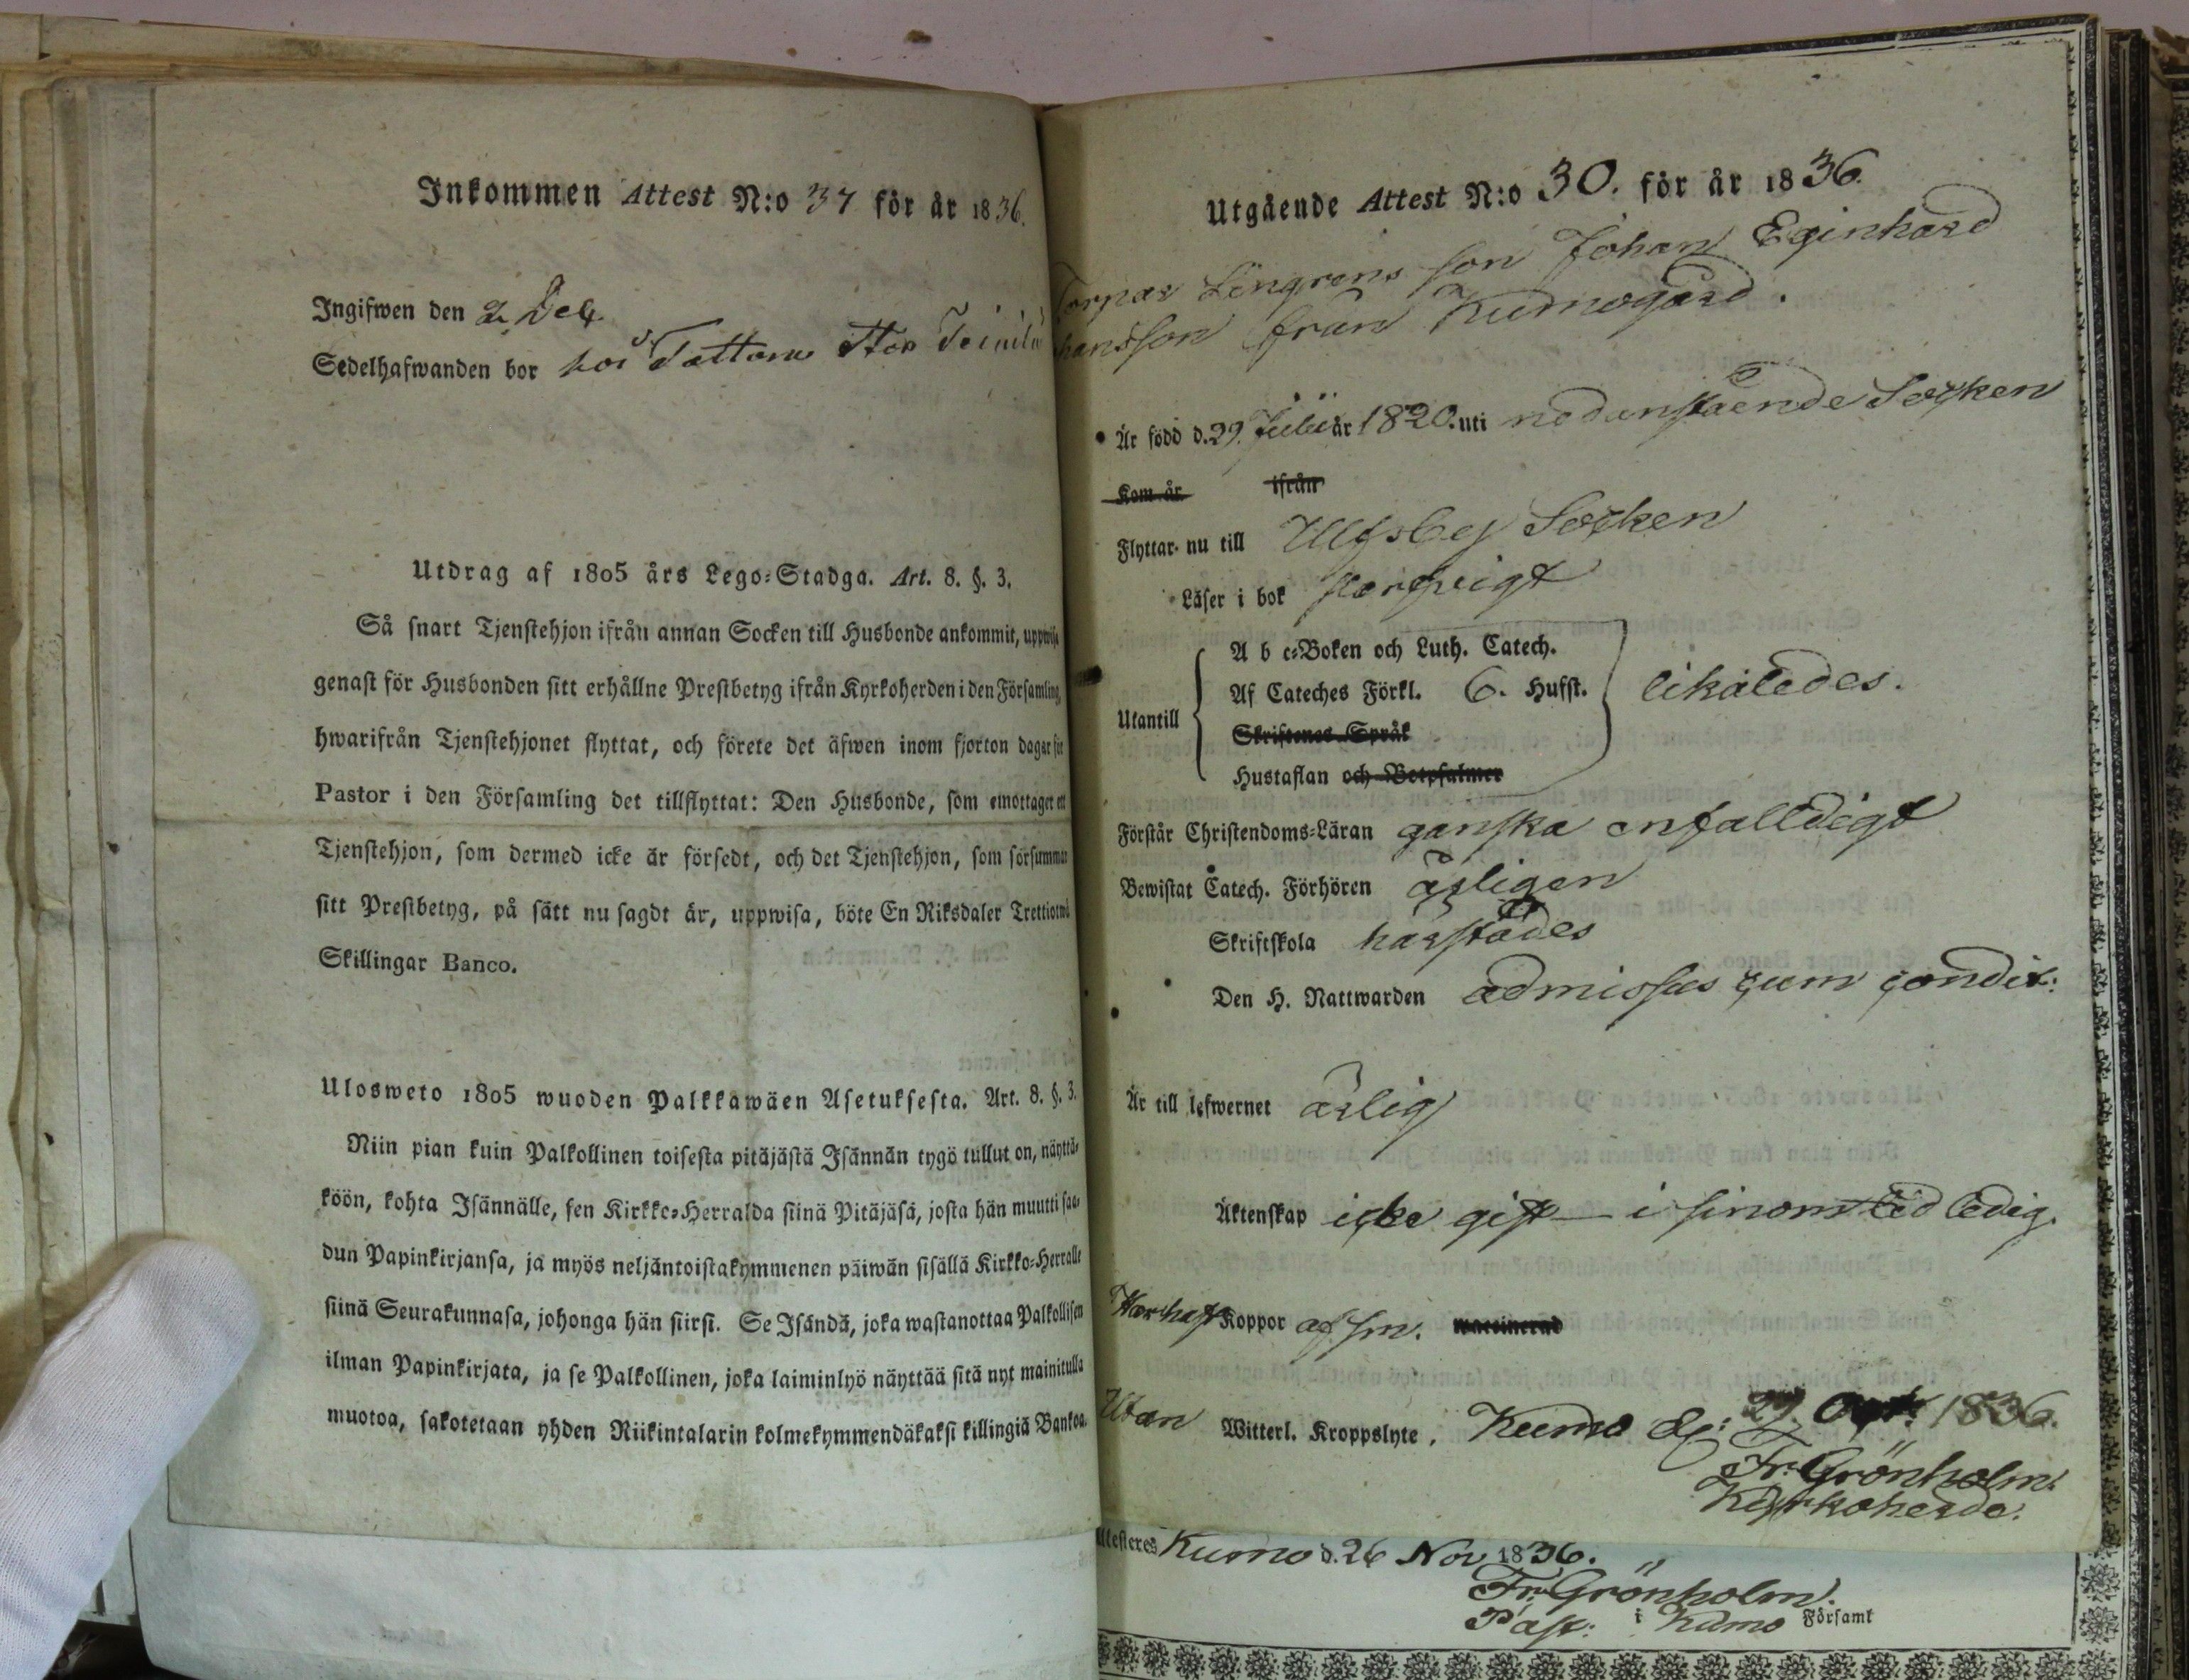 Inkommen Attest N:o 37 för år 1836.
Ingifwen den 2 Dec
Sedelhafwanden bor hos Tattara Sten
Utdrag af 1805 års Lego-Stadga. Art. 8. §. 3.
Så snart Tjenstehjon ifrån annan Socken till Husbonde ankommit, uppwise
genast för Husbonden sitt erhållne Prestbetyg ifrån Kyrkoherden i den Församling,
hwarifrån Tjenstehjonet flyttat, och förete det äfwen inom fjorton dagar för
Pastor i den Församling det tillflyttat: Den Husbonde, som emottager ett
Tjenstehjon, som dermed icke är försedt, och det Tjenstehjon, som försummar
sitt Prestbetyg, på sätt nu sagdt är, uppwisa, böte En Riksdaler Trettiotwå
Skillingar Banco.
Ulosweto 1805 wuoden Palkkawäen Asetuksesta. Art. 8. §. 3.
Niin pian kuin Palkollinen toisesta pitäjästä Isännän tygö tullut on, näyttä-
köön, kohta Isännälle, sen Kirkko-Herralda siinä Pitäjäsä, josta hän muutti saa-
dun Papinkirjansa, ja myös neljäntoistakymmenen päiwän sisällä Kirkko-Herralle
siinä Seurakunnasa, johonga hän siirsi. Se Isändä, joka wastanottaa Palkollisen
ilman Papinkirjata, ja se Palkollinen, joka laiminlyö näyttää sitä nyt mainitulla
muotoa, sakotetaan yhden Riikintalarin kolmekymmendäkaksi killingiä Bankoa.
Utgående Attest N:o 30. för år 1836.
Torpar Lingrens son Johan Eginhard
hansson från Kumogård.
Är född d. 29. Julii år 1820. uti nedanstående Socken
Kom år ifrån
Flyttar nu till Ulfsby Socken
Läser i bok försvigt
A b c-Boken och Luth. Catech.
Utantill Af Cateches Förkl. 6. Hufst. likaledes.
Skriftenes Språk
Hustaflan och Botpsalmer
Förstår Christendoms-Läran ganska enfalldigt
Bewistat Catech. Förhören årligen
Skriftskola härstädes
Den H. Nattwarden admissus cum condit:
Är till lefwernet ärlig
Äktenskap icke gift — i sinom tid ledig.
Har haft Koppor af sm. waccinerad
Utan Witterl. Kroppslyte, Kumo d: 29 Oct. 1836.
Fr. Grönholm.
Kyrkoherde.
Attesteres Kumo d. 26 Nov 1836.
Fr. Grönholm.
Past: i Kumo Församl